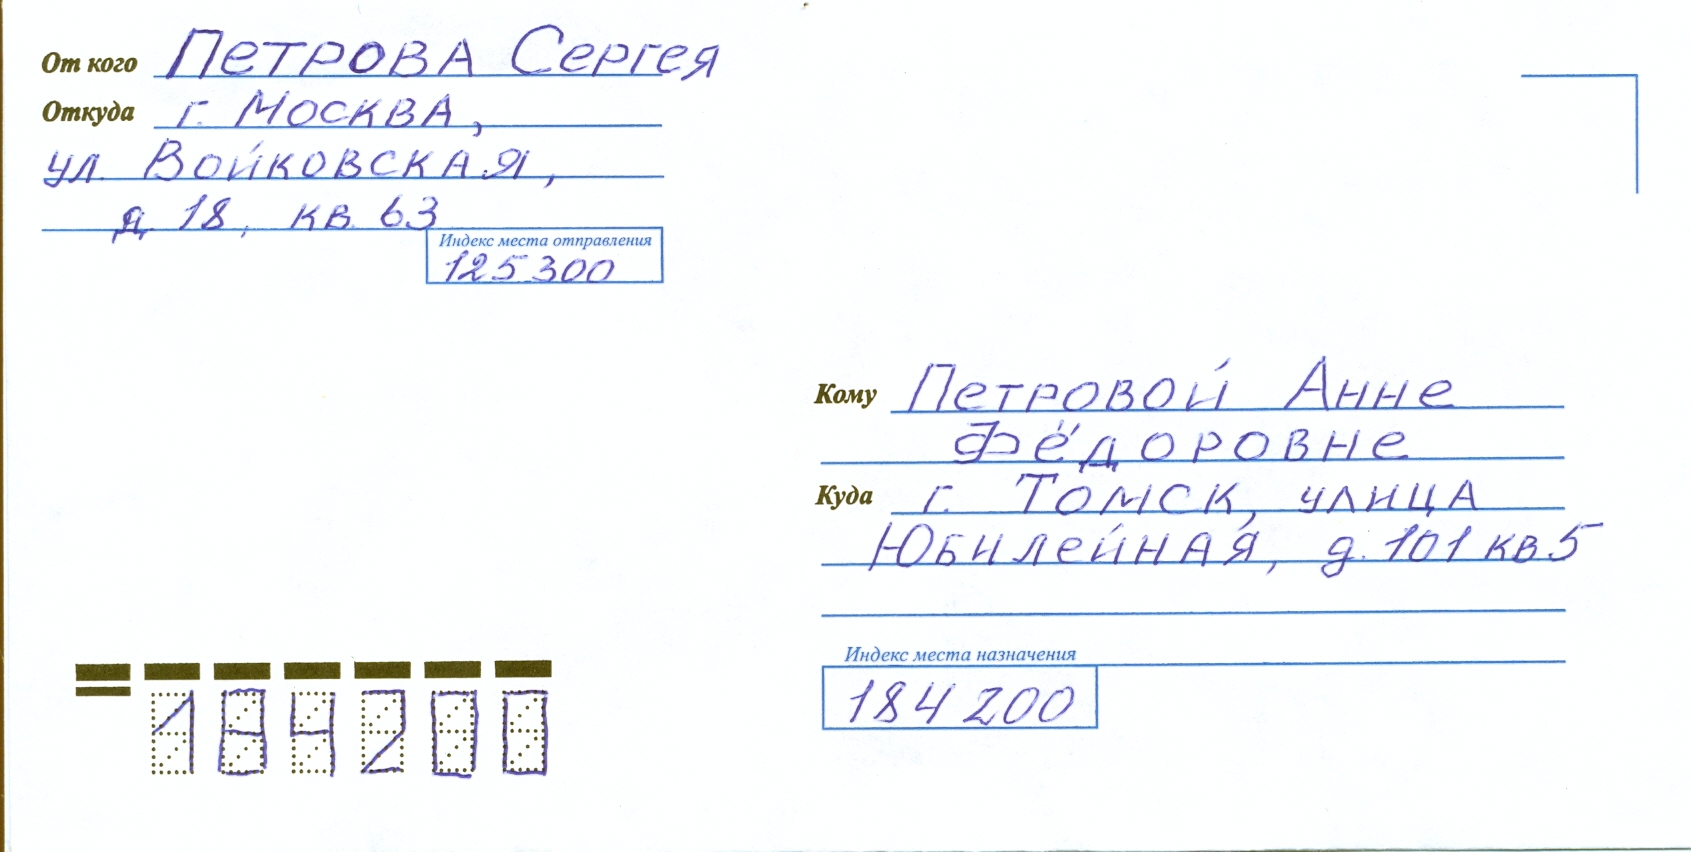 От кого Петрова Сергея
Откуда г. Москва,
ул. Войковская,
д. 18, кв. 63
Индекс места отправления
125300
Кому Петровой Анне
Фёдоровне
Куда г. Томск, улица
Юбилейная, д. 101 кв 5
Индекс места назначения
184200
184200